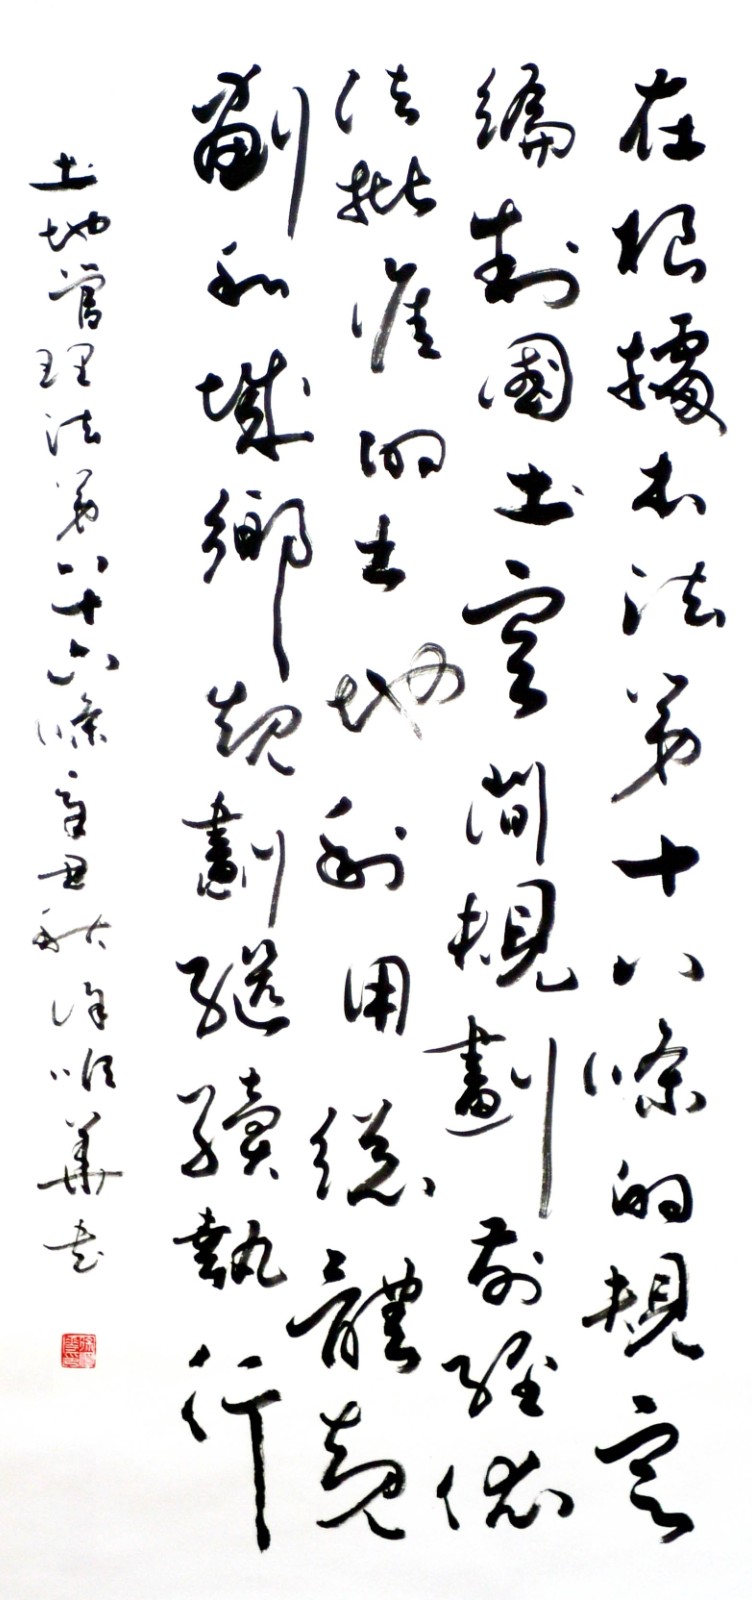 在根據本法第十八條的規定
編制國土空間規劃前經依
法批准的土地利用總體規
劃和城鄉規劃繼續執行
土地管理法第八十六條辛丑秋徐唯華書